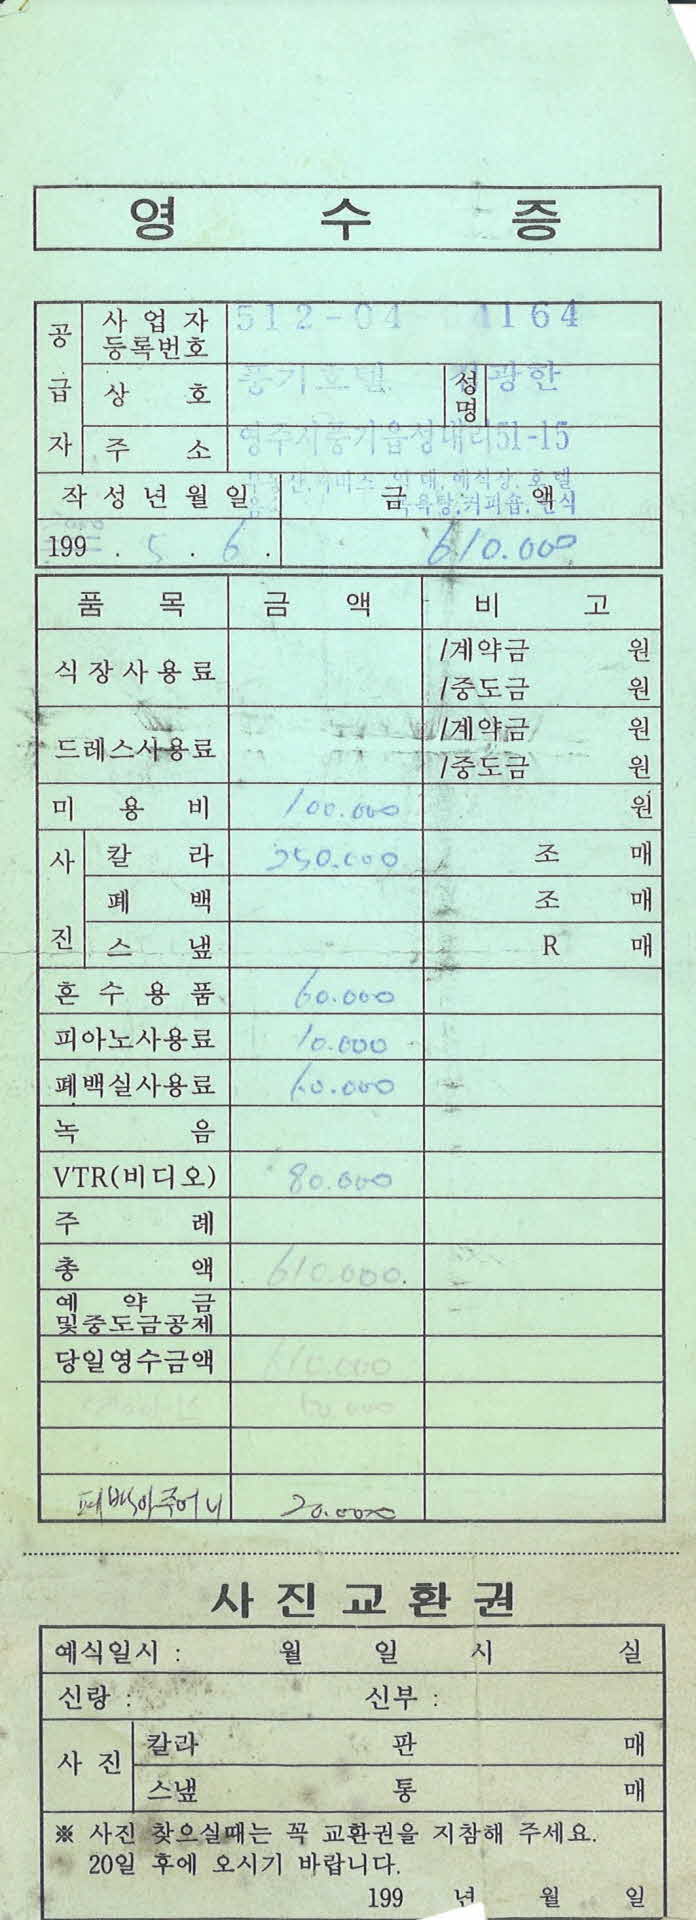 영 수 증
공급자
사업자등록번호 512-04 4164
상 호 풍기호텔 성명 광한
주 소 영주시풍기읍성내리51-15
부동산,서비스 임대,예식장,호텔
목욕탕,커피숍
작성년월일 금 액
199 . 5 . 6 . 610.000
품 목 금 액 비 고
식장사용료 /계약금 원
/중도금 원
드레스사용료 /계약금 원
/중도금 원
미 용 비 100.000 원
사진 칼 라 250.000 조 매
폐 백 조 매
스 냎 R 매
혼 수 용 품 60.000
피아노사용료 10.000
폐백실사용료 60.000
녹 음
VTR(비디오) 80.000
주 례
총 액 610.000.
예 약 금
및중도금공제
당일영수금액 610.000
폐백아주머니 20.000
사진교환권
예식일시 : 월 일 시 실
신랑 : 신부 :
사 진 칼라 판 매
스냎 통 매
※ 사진 찾으실때는 꼭 교환권을 지참해 주세요.
20일 후에 오시기 바랍니다.
199 년 월 일